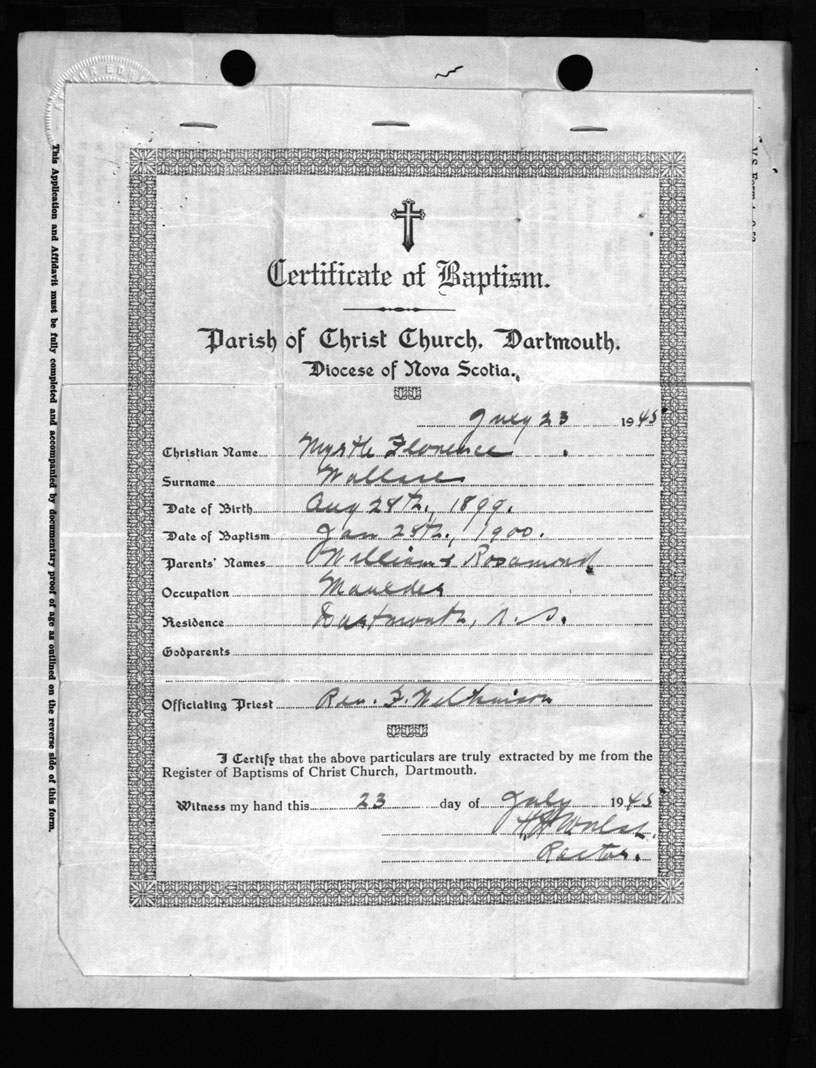 This Application and Affidavit must be fully completed and accompanied by documentary proof of age as outlined on the reverse side of this form.
Certificate of Baptism.
Parish of Christ Church, Dartmouth.
Diocese of Nova Scotia.
July 23 1945
Christian Name Myrtle Florence
Surname Wallace
Date of Birth Aug 28th., 1899.
Date of Baptism Jan 28th., 1900.
Parents' Names William & Rosamond
Occupation Moulder
Residence Dartmouth, N. S.
Godparents
Officiating Priest Rev. F. Wilkinson
I Certify that the above particulars are truly extracted by me from the
Register of Baptisms of Christ Church, Dartmouth.
Witness my hand this 23 day of July 1945
Rector.